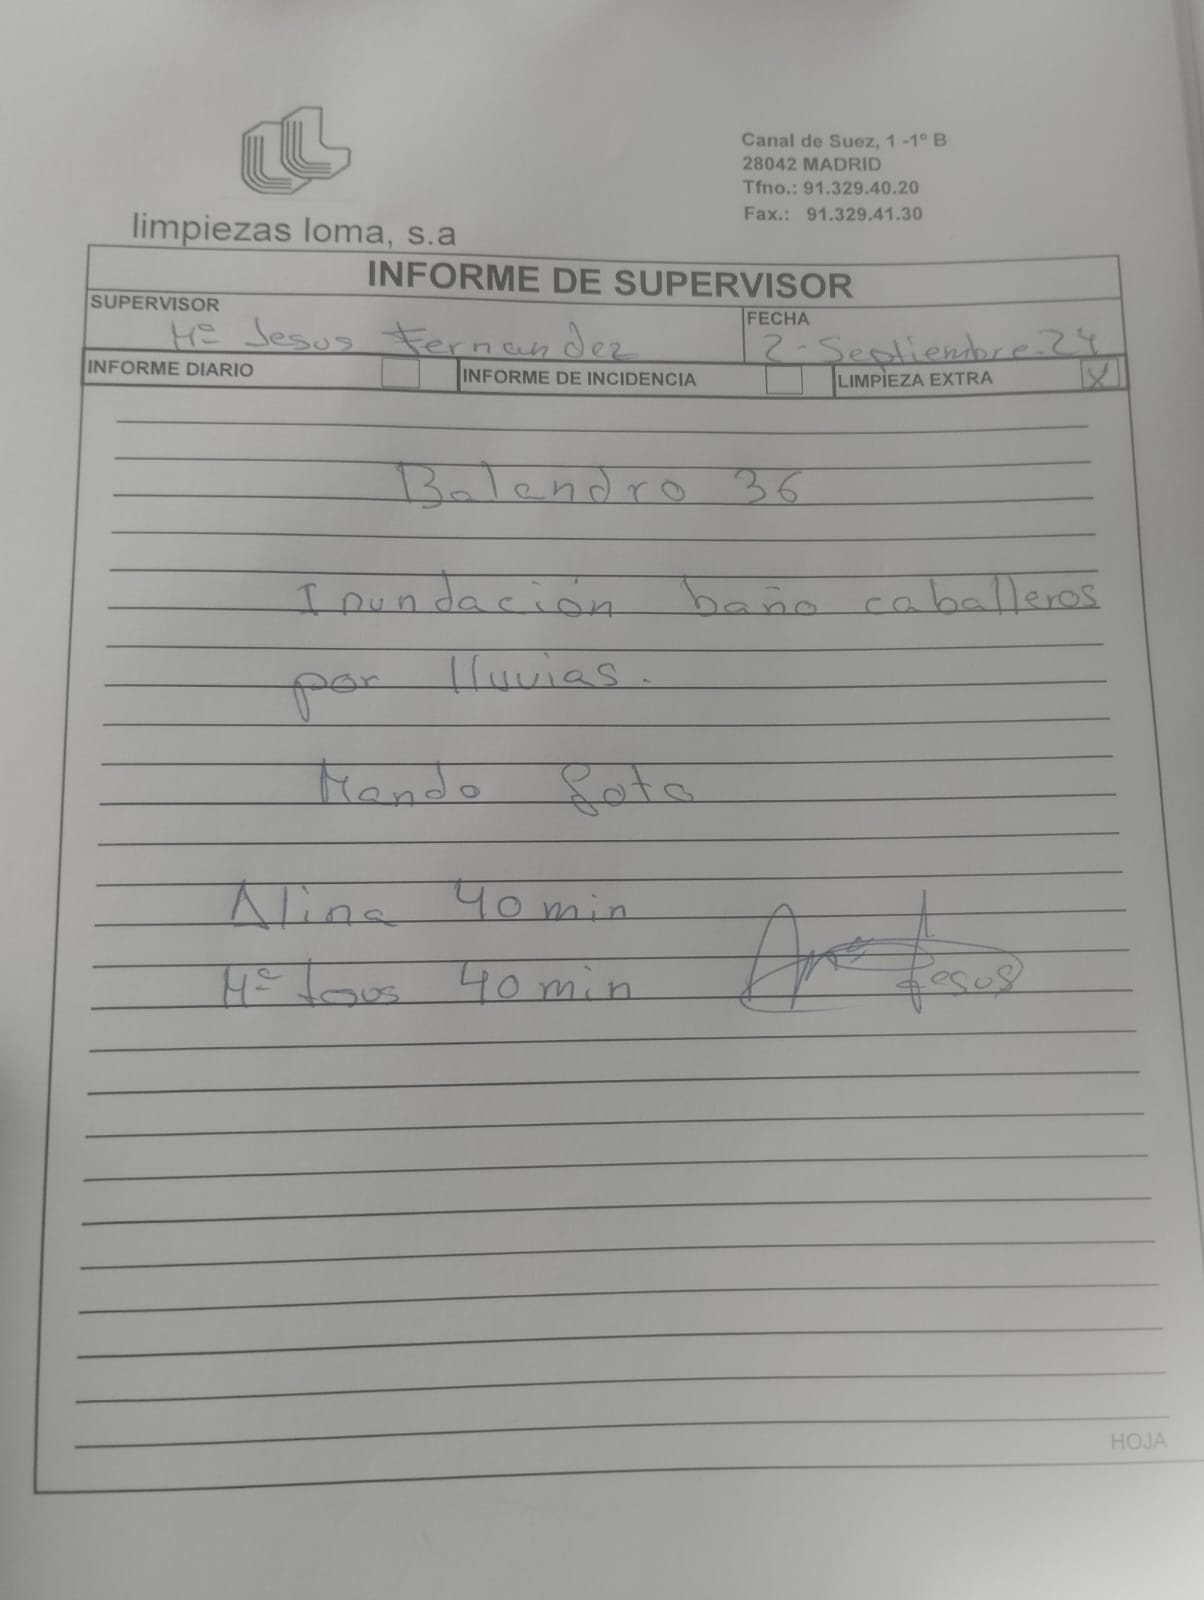 limpiezas loma, s.a
Canal de Suez, 1 -1º B
28042 MADRID
Tfno.: 91.329.40.20
Fax.: 91.329.41.30
INFORME DE SUPERVISOR
SUPERVISOR
Mª Jesus Fernandez
FECHA
2-Septiembre-24
INFORME DIARIO
INFORME DE INCIDENCIA
LIMPIEZA EXTRA X
Balandro 36
Inundación baño caballeros
por lluvias.
Mando foto
Alina 40 min
Mª Jesus 40 min
Jesus
HOJA